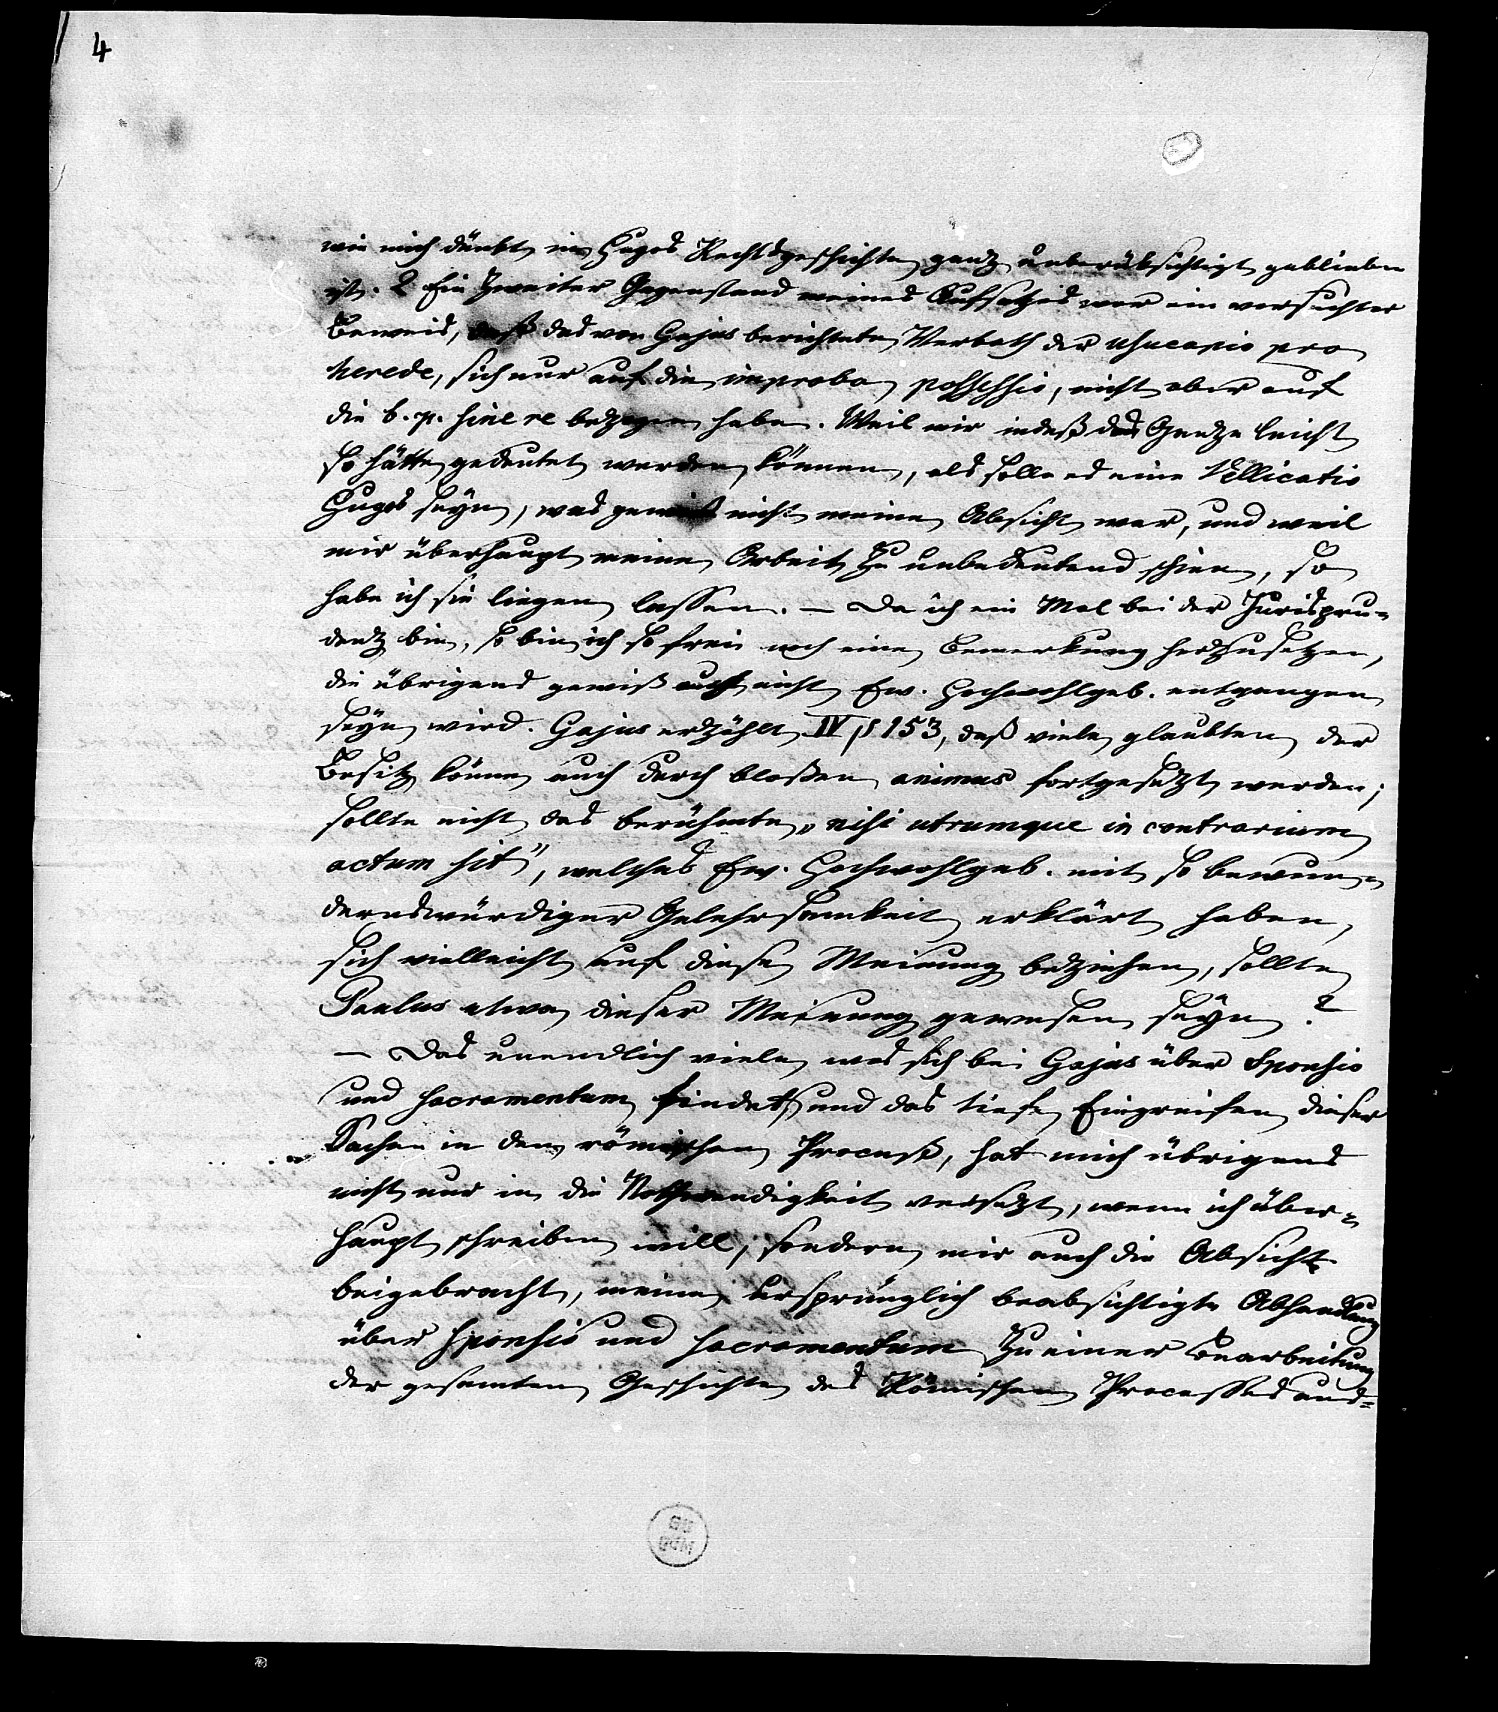 4
wie mich dünkt in Hugos Rechtsgeschichte ganz unberüksichtigt geblieben
ist. 2 Ein zweiter Gegenstand meines Aufsatzes war ein versuchter
Beweis, daß das von Gajus berichtete Verboth der usucapio pro
herede, sich nur auf die improba possessio, nicht aber auf
die b. p. sine re bezogen habe. Weil mir indeß das Ganze leicht
so hätte gedeutet werden können, als solle es eine Vellicatio
Hugos seyn, was gewiß nicht meine Absicht war, und weil
mir überhaupt meine Arbeit zu unbedeutend schien, so
habe ich sie liegen lassen. – Da ich ein Mal bei der Jurispru=
denz bin, so bin ich so frei noch eine Bemerkung herzusetzen,
die übrigens gewiß auch nicht Ew. Hochwohlgeb. entgangen
seyn wird. Gajus erzählt IV § 153, daß viele glaubten der
Besitz könne auch durch bloßen animus fortgesetzt werden;
sollte nicht das berühmte „nisi utrumque in contrarium
actum sit", welches Ew. Hochwohlgeb. mit so bewun=
dernswürdiger Gelehrsamkeit erklärt haben,
sich vielleicht auf diese Meinung beziehen, sollte
Paulus etwa dieser Meinung gewesen seyn?
– Das unendlich viele was sich bei Gajus über Sponsio
und sacramentum findet, und das tiefe Eingreifen dieser
Sachen in den römischen Proceß, hat mich übrigens
nicht nur in die Nothwendigkeit versezt, wenn ich über=
haupt schreiben will, sondern mir auch die Absicht
beigebracht, meine ursprünglich beabsichtigte Abhandlung
über sponsio und sacramentum zu einer Bearbeitung
der gesamten Geschichte des Römischen Processes aus=